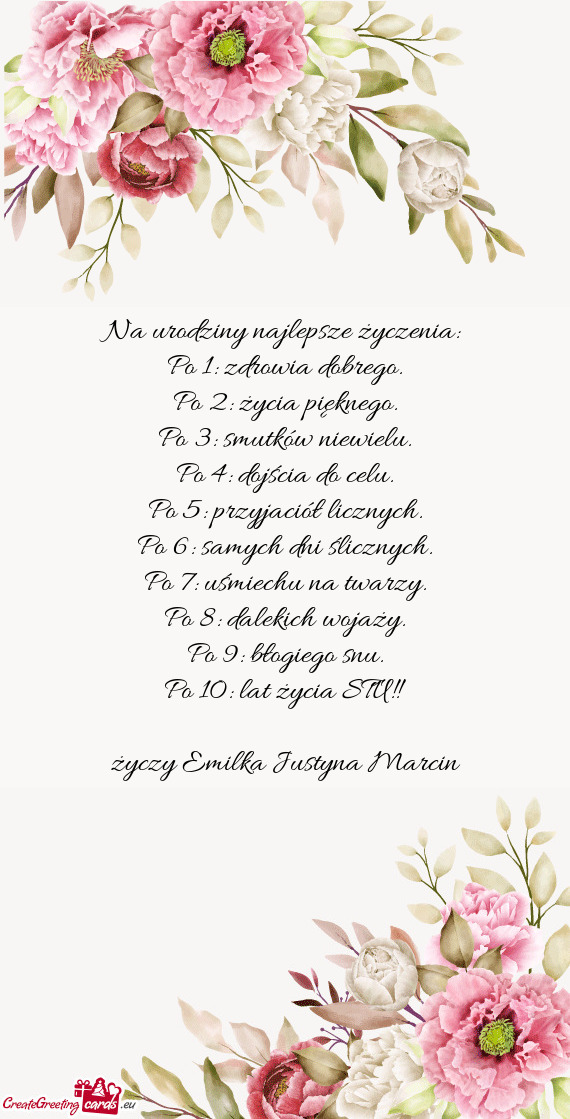 Na urodziny najlepsze życzenia:
Po 1: zdrowia dobrego.
Po 2: życia pięknego.
Po 3: smutków niewielu.
Po 4: dojścia do celu.
Po 5: przyjaciół licznych.
Po 6: samych dni ślicznych.
Po 7: uśmiechu na twarzy.
Po 8: dalekich wojaży.
Po 9: błogiego snu.
Po 10: lat życia STU!!
życzy Emilka Justyna Marcin
CreateGreeting cards .eu